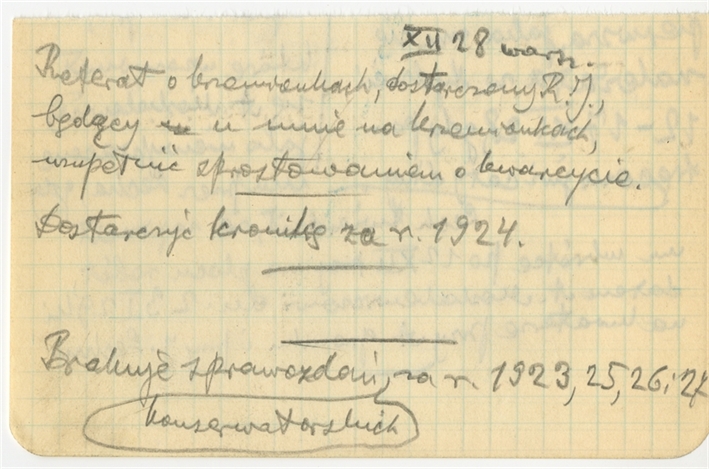 XII 28 warsz.
Referat o krzemionkach, dostarczony R. J.,
będący u mnie na krzemionkach,
uzupełnić sprostowaniem o kwarcycie.
Dostarczyć kronikę za r. 1924.
Brakuje sprawozdań, za r. 1923, 25, 26 i 27
konserwatorskich